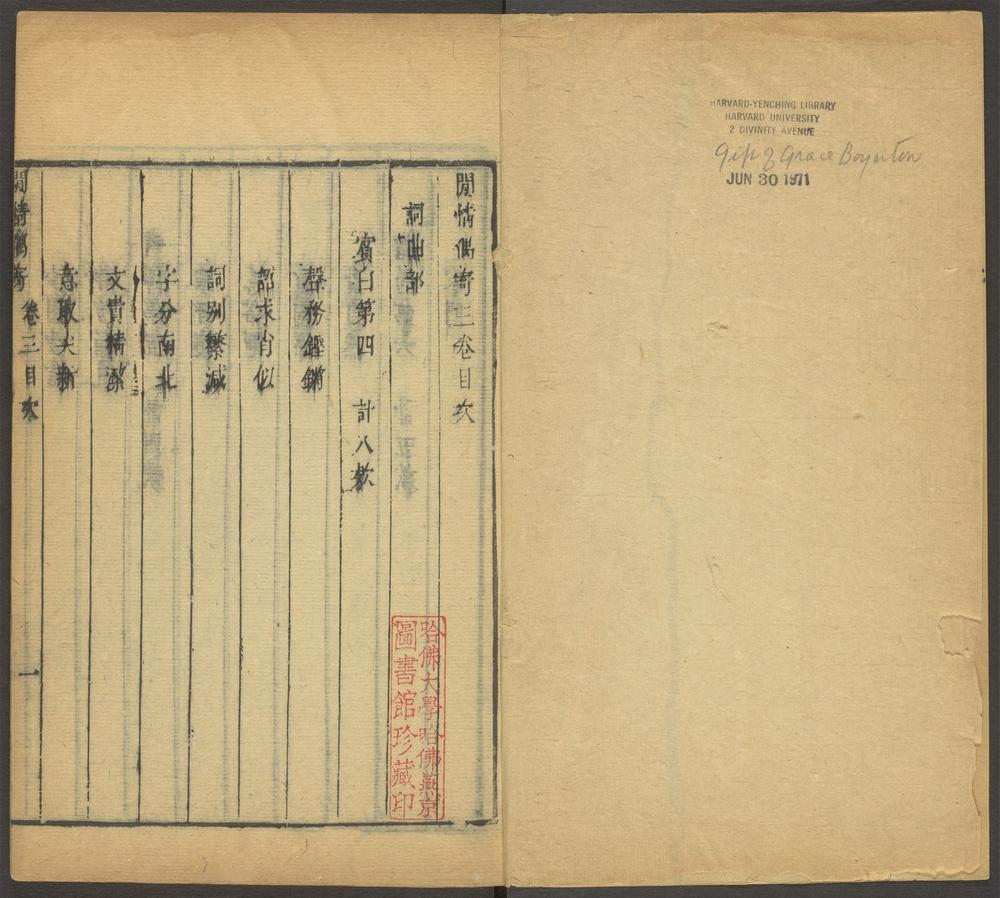 HARVARD-YENCHING LIBRARY
HARVARD UNIVERSITY
2 DIVINITY AVENUE
Gift of Grace Boynton
JUN 30 1971
閒情偶寄三卷目次
詞曲部
賓白第四 計八款
聲務鏗鏘
語求肖似
詞別繁減
字分南北
文貴精潔
意取尖新
閒情偶寄 卷三目次 一
哈佛大學哈佛燕京
圖書館珍藏印